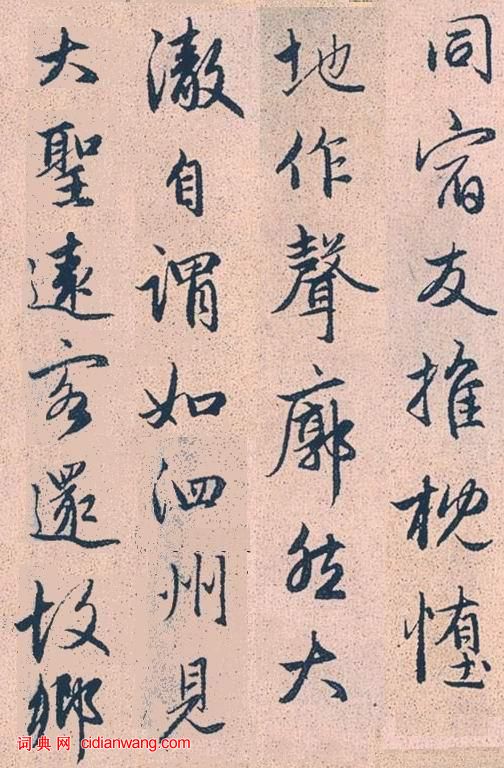 同宿友推枕墮
地作聲廓然大
澈自謂如泗州見
大聖遠客還故鄉
词典网 cidianwang.com